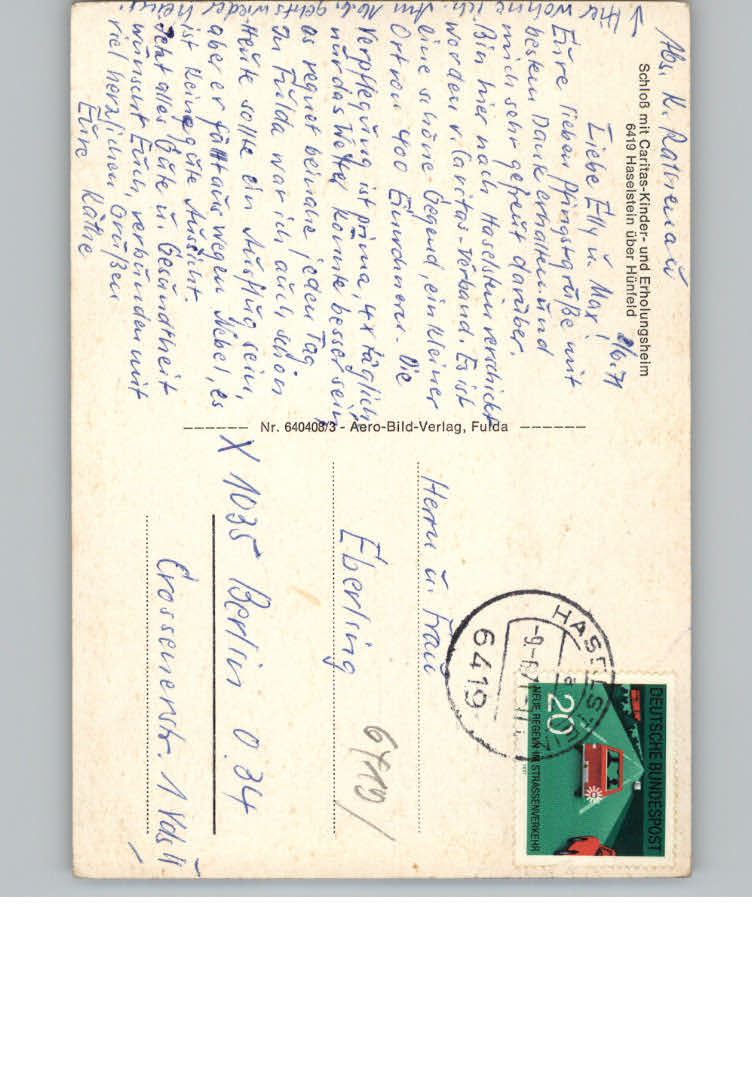 ↓ Hier wohne ich. Am 16.6. gehts wieder heim.
Abs. K. Rathenau
Schloß mit Caritas-Kinder- und Erholungsheim
6419 Haselstein über Hünfeld
8/6.71
Liebe Elly u. Max!
Eure lieben Pfingstgrüße mit
bestem Dank erhalten und
mich sehr gefreut darüber.
Bin hier nach Haselstein verschickt
worden v. Caritas-Verband. Es ist
eine schöne Gegend, ein kleiner
Ort von 400 Einwohnern. Die
Verpflegung ist prima, 4x täglich
nur das Wetter könnte besser sein
es regnet beinahe jeden Tag
In Fulda war ich auch schon
Heute sollte ein Ausflug sein,
aber er fällt aus wegen Nebel, es
ist keine gute Aussicht.
Jetzt alles Gute u. Gesundheit
wünscht Euch, verbunden mit
viel herzlichen Grüßen
Eure Käthe
Nr. 640408/3 - Aero-Bild-Verlag, Fulda
Herrn u. Frau
Eberling
X 1035 Berlin O.34
Crossenerstr. 1 Vds II
6419/
HASELSTEIN
-9.-6.71
6419
DEUTSCHE BUNDESPOST
20
NEUE REGELN IM STRASSENVERKEHR